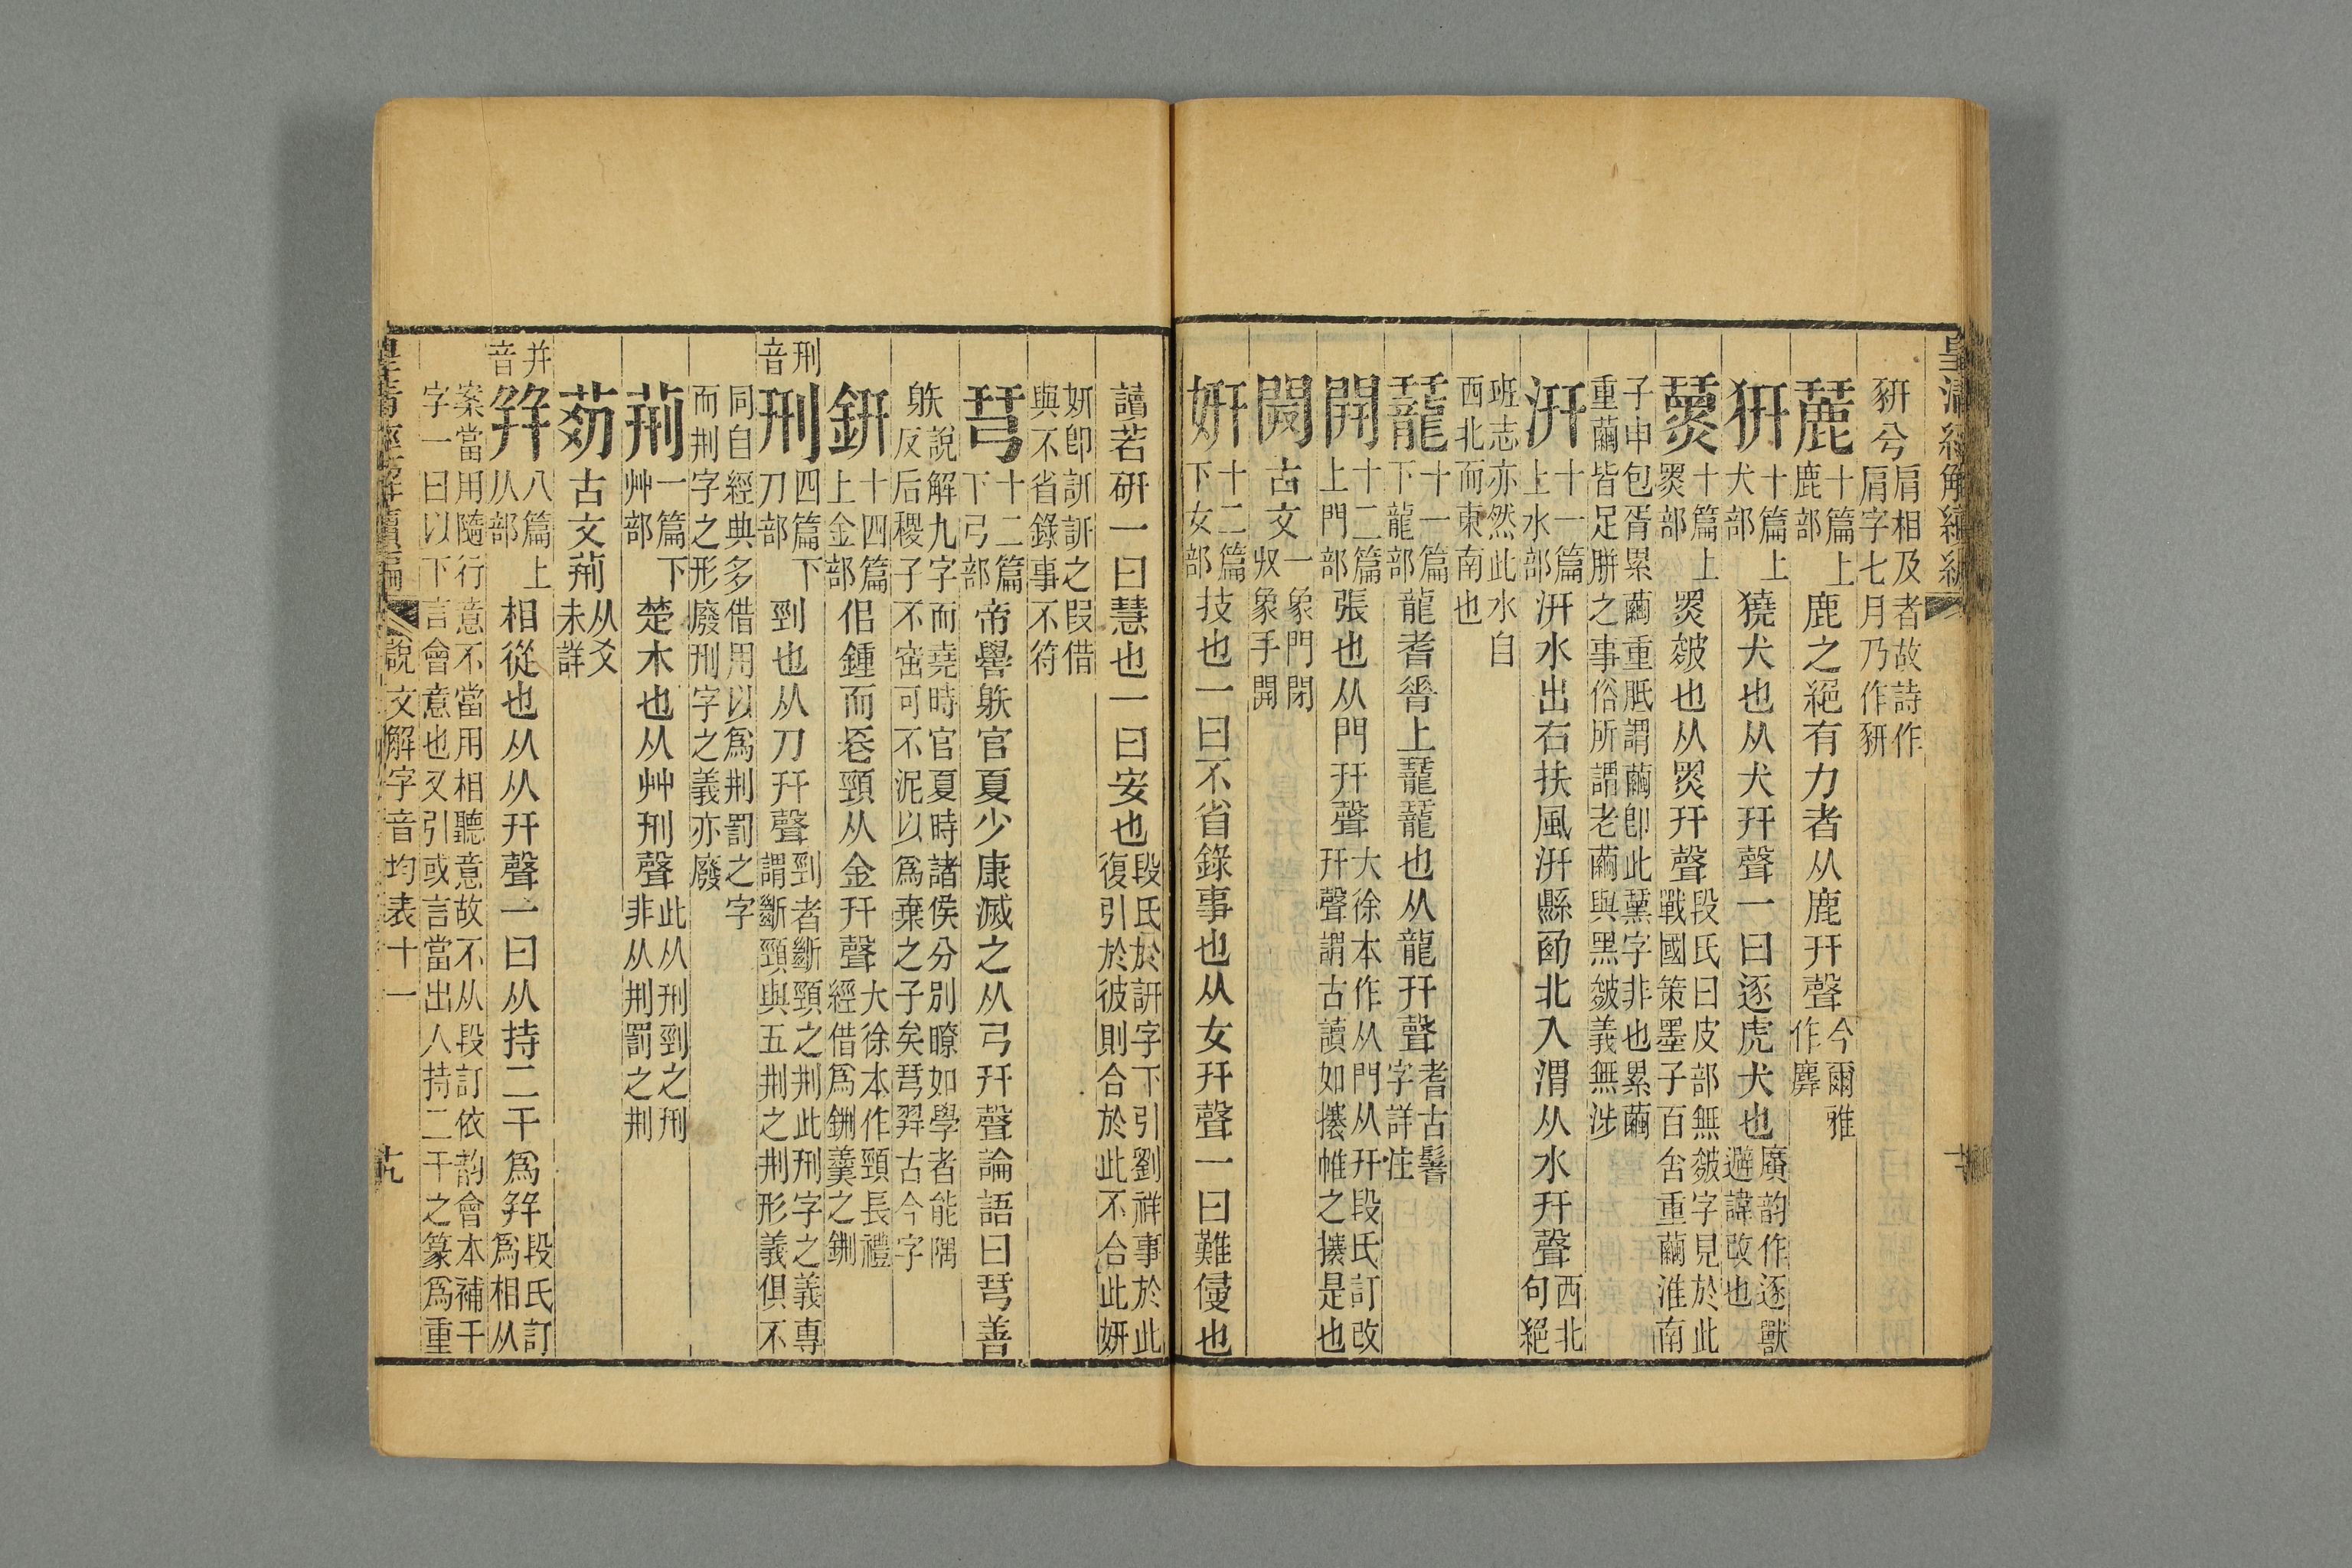 豜兮肩相及者故詩作肩字七月乃作豜
麉十篇上鹿部鹿之絕有力者从鹿幵聲今爾雅作麎
猏十篇上犬部獟犬也从犬幵聲一曰逐虎犬也廣韵作逐獸避諱改也
十篇上炎部皴也从幵聲段氏曰皮部無皴字見於此戰國策墨子百舍重繭淮南
子申包胥累繭重胝謂繭卽此字非也累繭重繭皆足胼之事俗所謂老繭與黑皴義無涉
汧十一篇上水部汧水出右扶風汧縣西北入渭从水幵聲西北句絕
班志亦然此水自西北而東南也
龍十一篇下龍部龍耆脊上龍龍也从龍幵聲耆古鬐字詳注
開十二篇上門部張也从門幵聲大徐本作从門从幵段氏訂改幵聲謂古讀如攐帷之攐是也
古文一象門閉収象手開
姸十二篇下女部技也一曰不省錄事也从女幵聲一曰難侵也
讀若研一曰慧也一曰安也段氏於訮字下引劉祥事於此復引於彼則合於此不合此姸
姸卽訮訮之叚借與不省錄事不符
十二篇下弓部帝嚳躲官夏少康滅之从弓幵聲論語曰善
躲說解九字而堯時官夏時諸侯分別瞭如學者能隅反后稷子不窋可不泥以爲棄之子矣羿古今字
銒十四篇上金部佀鍾而長頸从金幵聲大徐本作頸長禮經借爲鉶羹之鉶
刑音刑四篇下刀部剄也从刀幵聲剄者斷頸之荆此刑字之義專謂斷頸與五荆之荆形義俱不
同自經典多借用以爲荆罰之字而荆字之形廢刑字之義亦廢
荊一篇下艸部楚木也从艸刑聲此从刑剄之刑非从荆罰之荆
古文荊从爻未詳
并音八篇上从部相從也从从幵聲一曰从持二干爲幷段氏訂爲相从
案當用隨行意不當用相聽意故不从段訂依韵會本補干字一曰以下言會意也又引或言當出人持二干之篆爲重
皇清經解續編
說文解字音均表十一